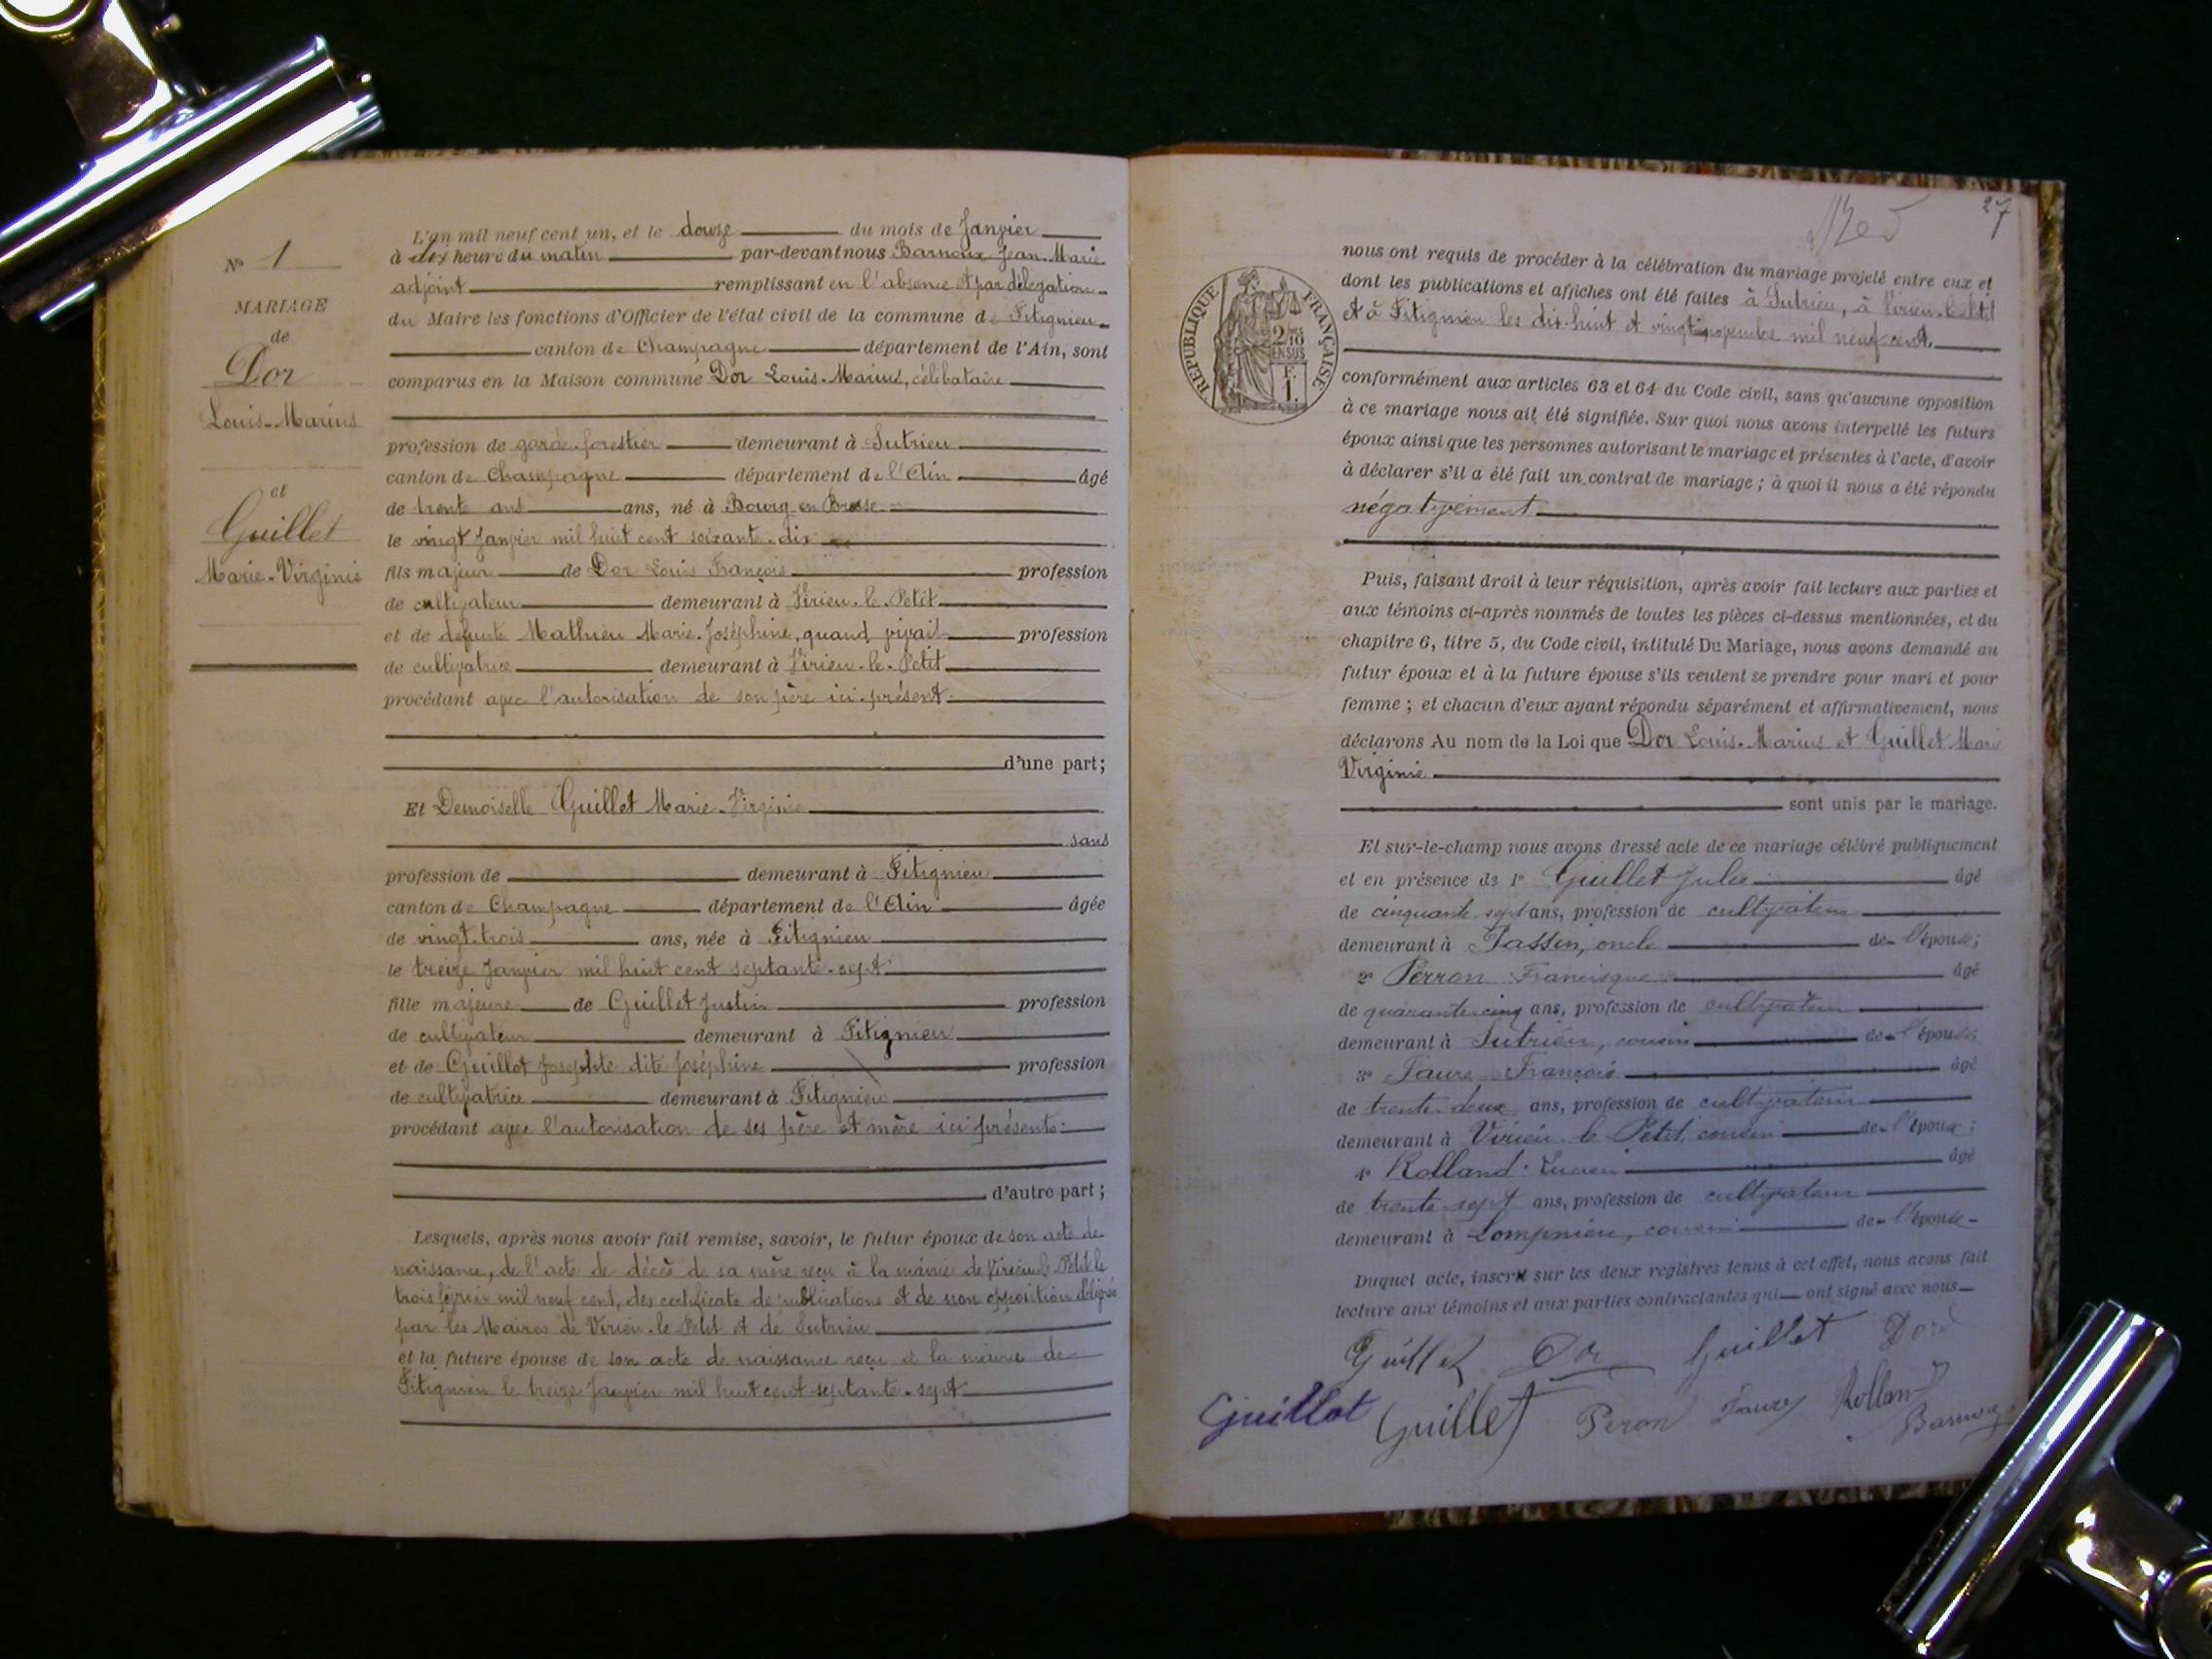 N° 1
MARIAGE
de
Dor
Louis-Marius
et
Guillet
Marie-Virginie
L'an mil neuf cent un, et le douze du mois de Janvier
à dix heure du matin par-devant nous Barnoux Jean-Marie
adjoint remplissant en l'absence et par délégation
du Maire les fonctions d'Officier de l'état civil de la commune de Fitignieu
canton de Champagne département de l'Ain, sont
comparus en la Maison commune Dor Louis-Marius, célibataire
profession de garde-forestier demeurant à Sutrieu
canton de Champagne département de l'Ain âgé
de trente ans ans, né à Bourg-en-Bresse
le vingt Janvier mil huit cent soixante-dix
fils majeur de Dor Louis François profession
de cultivateur demeurant à Virieu-le-Petit
et de défunte Mathieu Marie-Joséphine, quand vivait profession
de cultivatrice demeurant à Virieu-le-Petit
procédant avec l'autorisation de son père ici présent
d'une part;
Et Demoiselle Guillet Marie-Virginie
sans
profession de demeurant à Fitignieu
canton de Champagne département de l'Ain âgée
de vingt-trois ans, née à Fitignieu
le treize Janvier mil huit cent septante-sept
fille majeure de Guillet Justin profession
de cultivateur demeurant à Fitignieu
et de Guillot Josephte dite Joséphine profession
de cultivatrice demeurant à Fitignieu
procédant avec l'autorisation de ses père et mère ici présents
d'autre part;
Lesquels, après nous avoir fait remise, savoir, le futur époux de son acte de
naissance, de l'acte de décès d sa mère reçu à la mairie de Virieu-le-Petit le
trois février mil neuf cent, des certificats de publications et de non opposition délivrés
par les Maires de Virieu-le-Petit et de Sutrieu
et la future épouse de son acte de naissance reçu à la mairie de
Fitignieu le treize Janvier mil huit cent septante-sept
27
RÉPUBLIQUE FRANÇAISE
2/10
EN SUS
F.
1.
nous ont requis de procéder à la célébration du mariage projeté entre eux et
dont les publications et affiches ont été faites à Sutrieu, à Virieu-le-Petit
et à Fitignieu les dix-huit et vingt novembre mil neuf cent.
conformément aux articles 63 et 64 du Code civil, sans qu'aucune opposition
à ce mariage nous ait été signifiée. Sur quoi nous avons interpellé les futurs
époux ainsi que les personnes autorisant le mariage et présentes à l'acte, d'avoir
à déclarer s'il a été fait un contrat de mariage; à quoi il nous a été répondu
négativement
Puis, faisant droit à leur réquisition, après avoir fait lecture aux parties et
aux témoins ci-après nommés de toutes les pièces ci-dessus mentionnées, et du
chapitre 6, titre 5, du Code civil, intitulé Du Mariage, nous avons demandé au
futur époux et à la future épouse s'ils veulent se prendre pour mari et pour
femme; et chacun d'eux ayant répondu séparément et affirmativement, nous
déclarons Au nom de la Loi que Dor Louis-Marius et Guillet Marie
Virginie
sont unis par le mariage.
Et sur-le-champ nous avons dressé acte de ce mariage célébré publiquement
et en présence de 1° Guillet Jules âgé
de cinquante-sept ans, profession de cultivateur
demeurant à Passin, oncle de l'épouse;
2° Perron Francisque âgé
de quarante-cinq ans, profession de cultivateur
demeurant à Sutrieu, cousin de l'épouse;
3° Faure François âgé
de trente-deux ans, profession de cultivateur
demeurant à Virieu-le-Petit, cousin de l'époux;
4° Rolland Lucien âgé
de trente-sept ans, profession de cultivateur
demeurant à Lompnieu, cousin de l'épouse
Duquel acte, inscrit sur les deux registres tenus à cet effet, nous avons fait
lecture aux témoins et aux parties contractantes qui ont signé avec nous
Guillet Dor Guillet Dor
Guillot Guillet Peron Faure Rolland